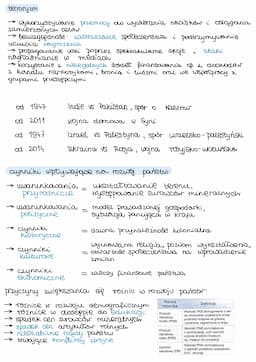 terroryzm
→ wykorzystywanie przemocy do wywierania nacisków i osiągania
zamierzonych celów
→ bezwzględność, zastraszanie społeczeństwa i podtrzymywanie
uczucia zagrożenia
→ propagowanie idei poprzez spektakularne akcje i ataki
nagłaśniane w mediach
→ korzystanie z nielegalnych źródeł finansowania np. z dochodów
z handlu narkotykami, bronią i ludźmi oraz we współpracy z
grupami przestępczymi
od 1947 Indie vs Pakistan, spór o Kaszmir
od 2011 wojna domowa w Syrii
od 1947 Izrael vs Palestyna, spór izraelsko-palestyński
od 2014 Ukraina vs Rosja, wojna rosyjsko-ukraińska
czynniki wpływające na rozwój państw
→ uwarunkowania przyrodnicze = ukształtowanie terenu,
występowanie surowców mineralnych
→ uwarunkowania polityczne = model prowadzonej gospodarki,
sytuacja panująca w kraju
→ czynniki historyczne = dawna przynależność kolonialna
→ czynniki kulturowe = wyznawana religia, poziom wykształcenia,
otwartość społeczeństwa na wprowadzanie
zmian
→ czynniki ekonomiczne = zasoby finansowe państwa
przyczyny zwiększania się różnic w rozwoju państw
→ różnice w rozwoju demograficznym
→ różnice w dostępie do edukacji
→ spadek cen surowców mineralnych
→ spadek cen artykułów rolnych
→ niestabilne rządy państw
→ trwające konflikty zbrojne